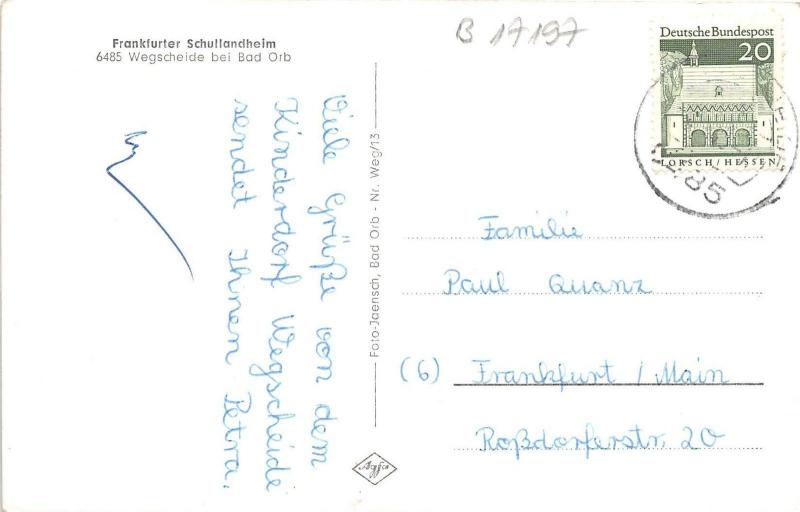 Frankfurter Schullandheim
6485 Wegscheide bei Bad Orb
B 17197
Deutsche Bundespost
20
LORSCH/HESSEN
6485
Viele Grüße von dem
Kinderdorf Wegscheide
sendet Ihnen Petra.
Foto-Jaensch, Bad Orb - Nr. Weg/13
Familie
Paul Quanz
(6) Frankfurt / Main
Roßdorferstr. 20
Agfa